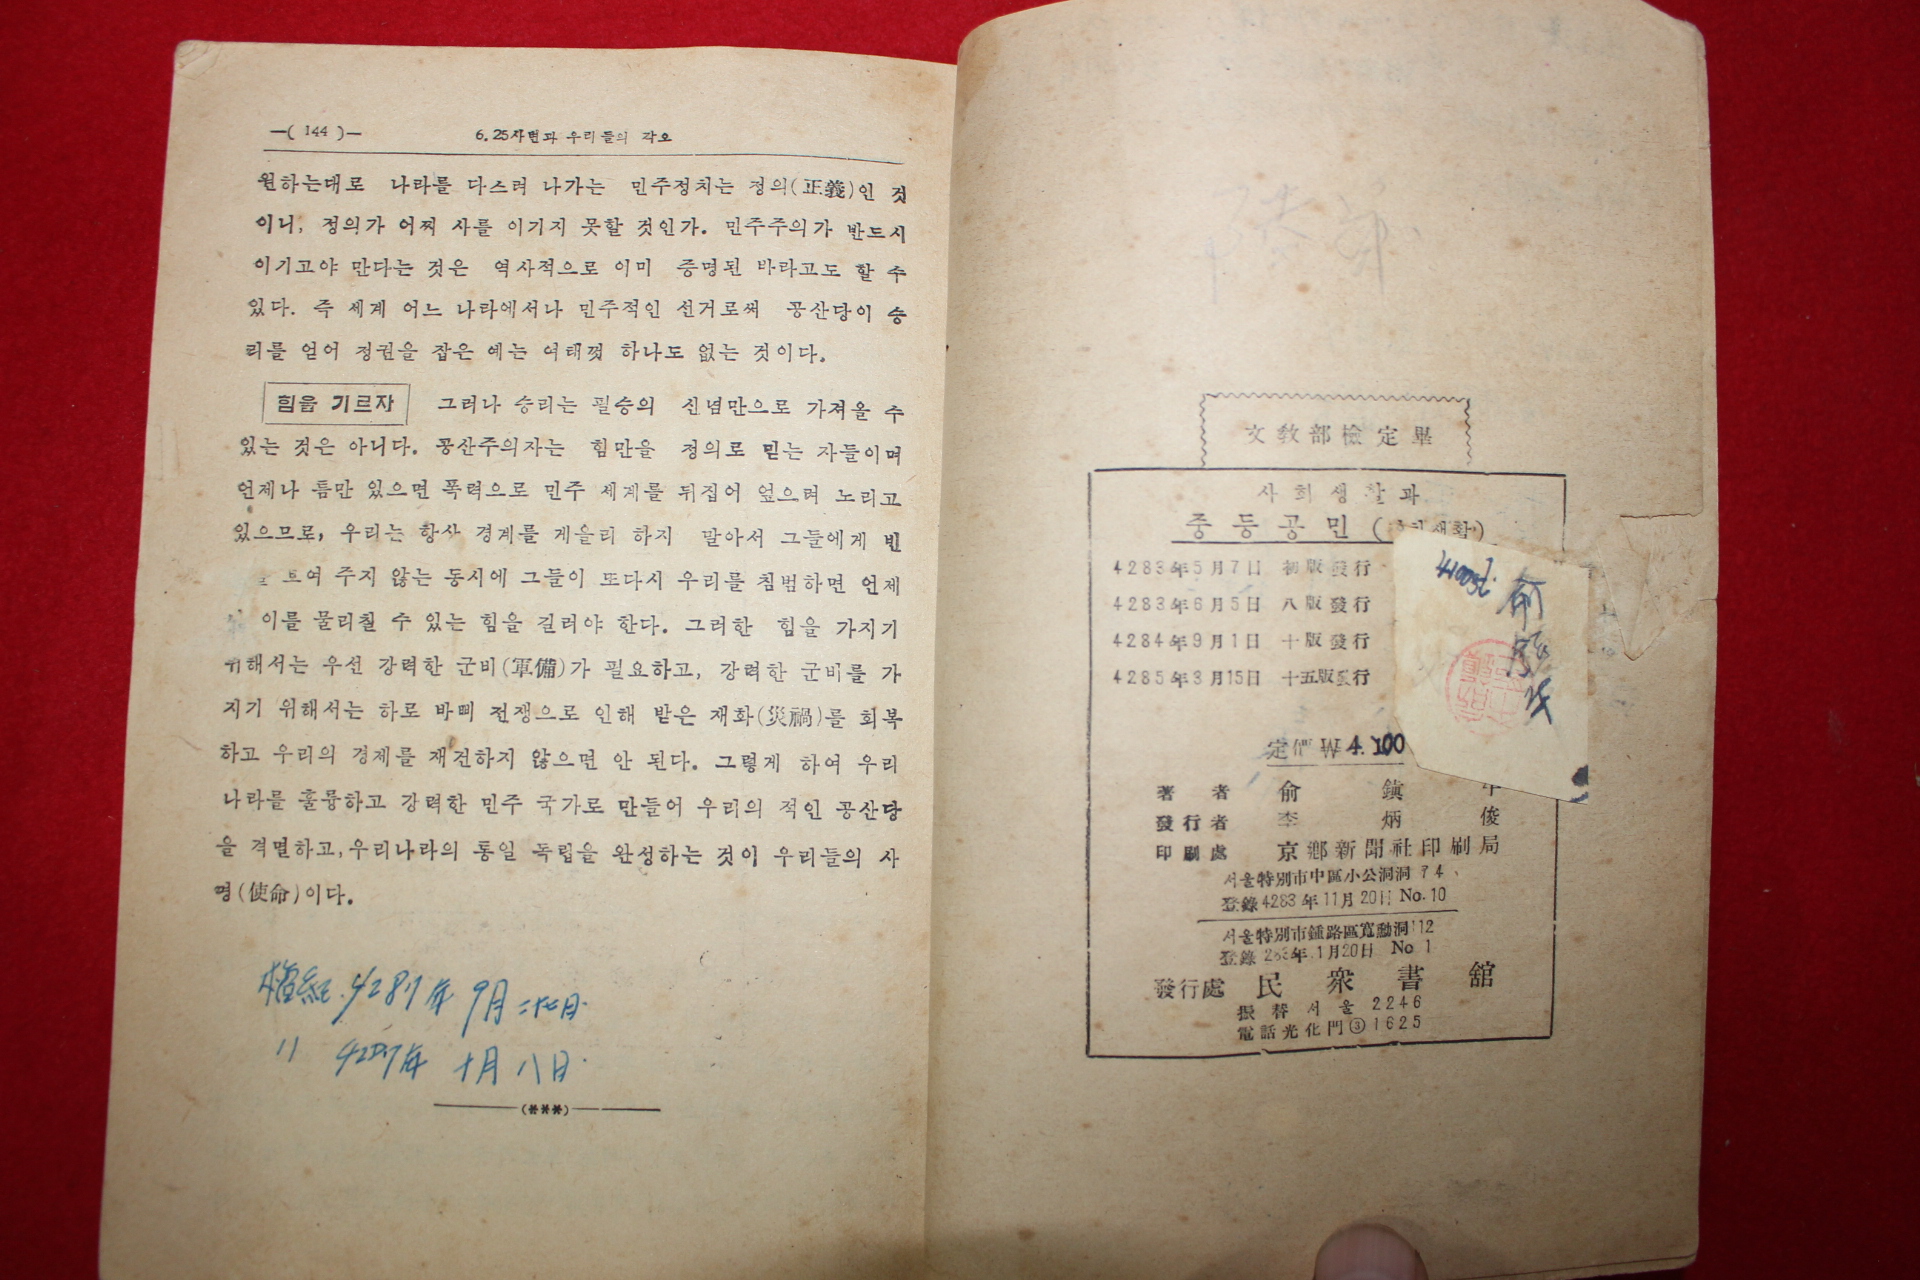 —( 144 )—
6.25사변과 우리들의 각오
원하는대로 나라를 다스려 나가는 민주정치는 정의(正義)인 것
이니, 정의가 어찌 사를 이기지 못할 것인가. 민주주의가 반드시
이기고야 만다는 것은 역사적으로 이미 증명된 바라고도 할 수
있다. 즉 세계 어느 나라에서나 민주적인 선거로써 공산당이 승
리를 얻어 정권을 잡은 예는 여태껏 하나도 없는 것이다.
힘을 기르자 그러나 승리는 필승의 신념만으로 가져올 수
있는 것은 아니다. 공산주의자는 힘만을 정의로 믿는 자들이며
언제나 틈만 있으면 폭력으로 민주 세계를 뒤집어 엎으려 노리고
있으므로, 우리는 항상 경계를 게을리 하지 말아서 그들에게 빈
보여 주지 않는 동시에 그들이 또다시 우리를 침범하면 언제
이를 물리칠 수 있는 힘을 길러야 한다. 그러한 힘을 가지기
위해서는 우선 강력한 군비(軍備)가 필요하고, 강력한 군비를 가
지기 위해서는 하로 바삐 전쟁으로 인해 받은 재화(災禍)를 회복
하고 우리의 경제를 재건하지 않으면 안 된다. 그렇게 하여 우리
나라를 훌륭하고 강력한 민주 국가로 만들어 우리의 적인 공산당
을 격멸하고, 우리나라의 통일 독립을 완성하는 것이 우리들의 사
명(使命)이다.
檀紀. 4287年 9月 二十七日.
〃 4287年 十月 八日.
(***)
文敎部檢定畢
사회생활과
중등공민
4283年5月7日 初版發行
4283年6月5日 八版發行
4284年9月1日 十版發行
4285年3月15日 十五版發行
定價 ₩4.100
著者 兪鎭
發行者 李炳俊
印刷處 京鄕新聞社印刷局
서울特別市中區小公洞洞 74
登錄4283年11月20日 No.10
서울特別市鍾路區寬勳洞112
登錄 283年.1月20日 No 1
發行處 民衆書舘
振替서울 2246
電話光化門③1625